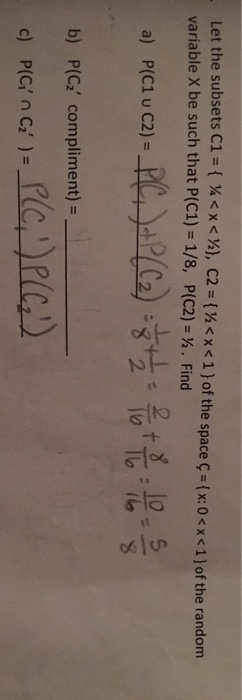 Let the subsets C1 = { ¼ < x < ½}, C2 = { ½ < x < 1 } of the space Ç = { x: 0 < x < 1 } of the random
variable X be such that P(C1) = 1/8, P(C2) = ½. Find
a) P(C1 ∪ C2) = P(C₁)+P(C₂) = 1/8 + 1/2 = 2/16 + 8/16 = 10/16 = 5/8
b) P(C₂' compliment) =
c) P(C₁' ∩ C₂' ) = P(C₁')P(C₂')